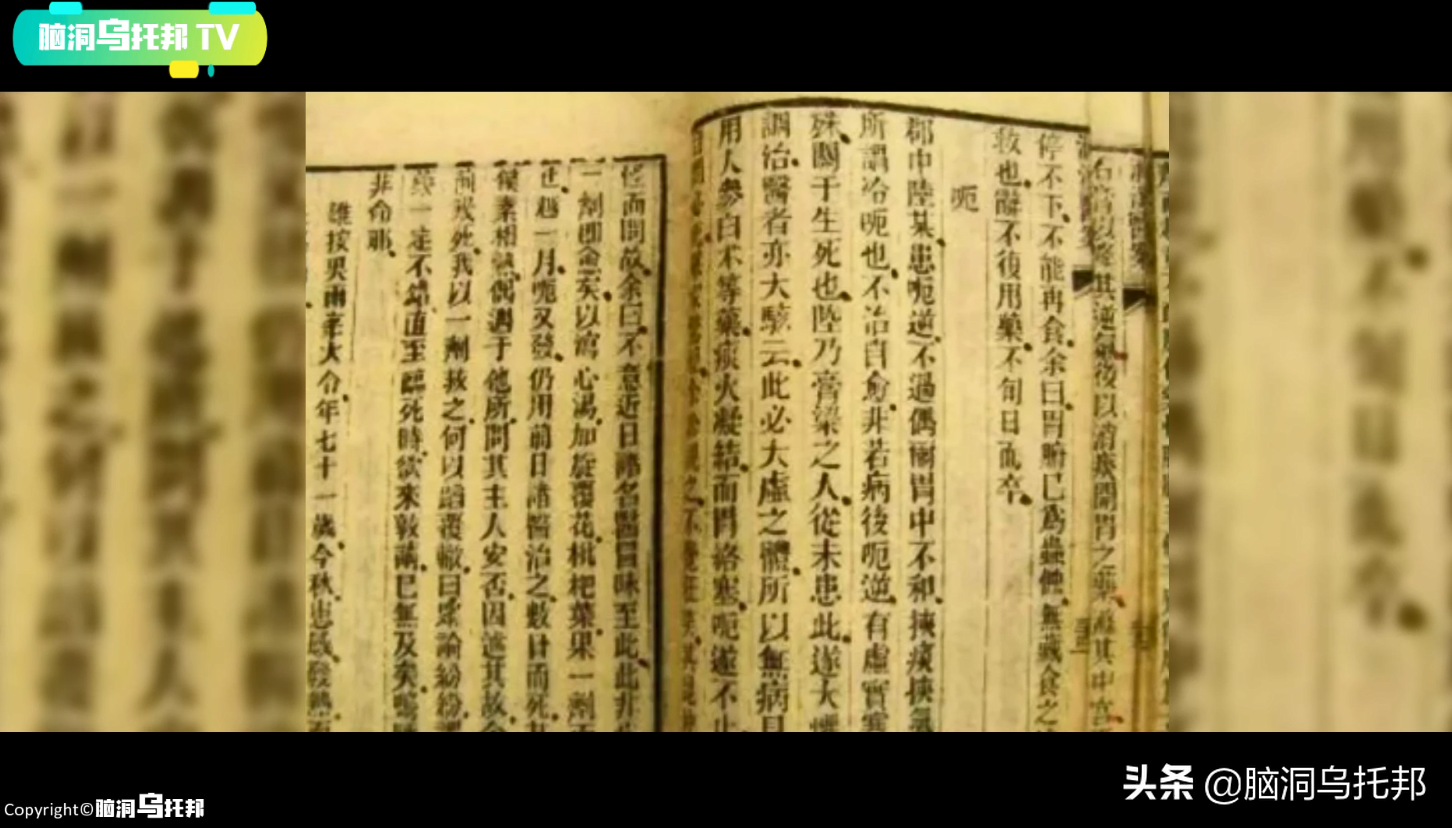 脑洞乌托邦 TV
以降其逆氣後以消痰開胃之藥滌其中宮
停不下不能再食余曰胃腑已爲蟲蝕無藏食之
救也辭不復用藥不旬日而卒
呃
郡中陸某患呃逆不過偶爾胃中不和挾痰挾氣
所謂冷呃也不治自愈非若病後呃逆有虛實寒
殊關于生死也陸乃膏粱之人從未患此遂大懼
調治醫者亦大駭云此必大虛之體所以無病見
用人參白朮等藥痰火凝結而胃絡塞呃遂不止
怪而問故余曰不意近日諸名醫冒昧至此此非
一劑即愈矣以瀉心湯加旋覆花枇杷葉果一劑而
止越一月呃又發仍用前日諸醫治之數日而死其
僕素相熟偶遇于他所問其主人安否因述其故余
前幾死我以一劑救之何以蹈覆轍曰眾論紛紛謂
藥一定不錯直至臨死時欲來敦請已無及矣嗚
非命耶
雄按 雨峯大令年七十一歲今秋患感發熱
头条 @脑洞乌托邦
Copyright©脑洞乌托邦